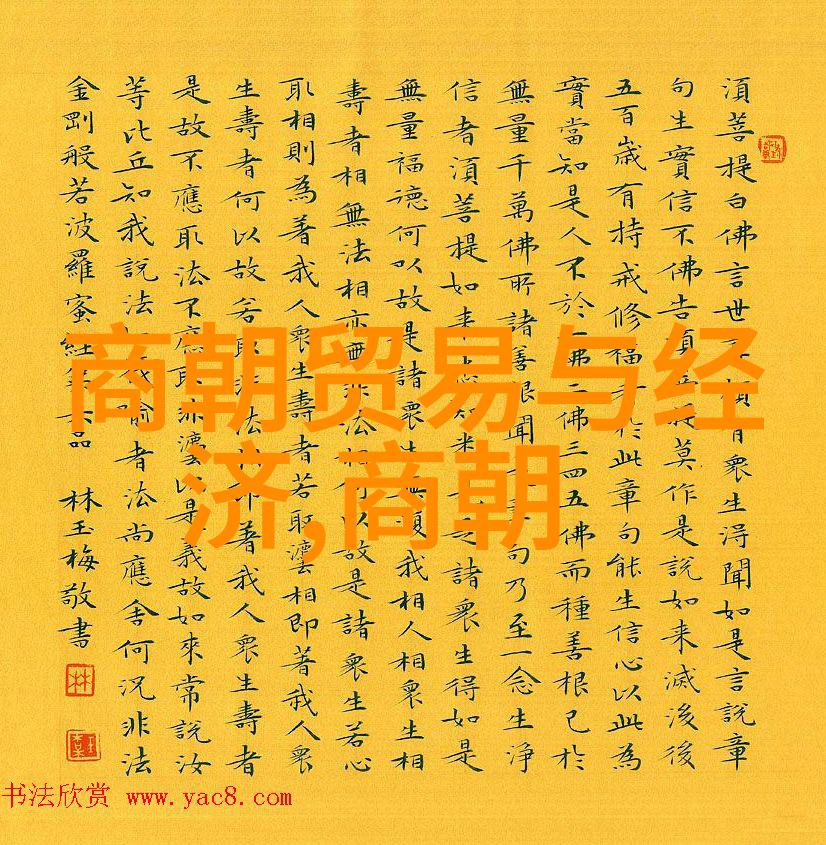 須菩提白佛言世有眾生得聞如是言說章
句生實信不佛告須菩提莫作是說如来滅後後
五百歲有持戒修福者於此章句能生信心以此為
實當知是人不於一佛二佛三四五佛而種善根已於
無量千萬佛所諸善根聞章句乃至一念生淨
信者須菩提如来悉知諸眾生得如是
無量福德何以故是諸眾生無復我相人相眾生相
壽者相無法相亦無非法相何以故是諸眾生若心
取相則為著我人眾生壽者若取灋相即著我人眾
生壽者何以故若取非法相即著我人眾生壽者
是故不應取法不應取非灋以是義故如來常說汝
等比丘知我說法如筏喻者法尚應舍何況非法
金剛般若波羅蜜經第六品 林玉梅敬書
林
商朝贸易与经
济,商朝
书法欣赏 www.yac8.com